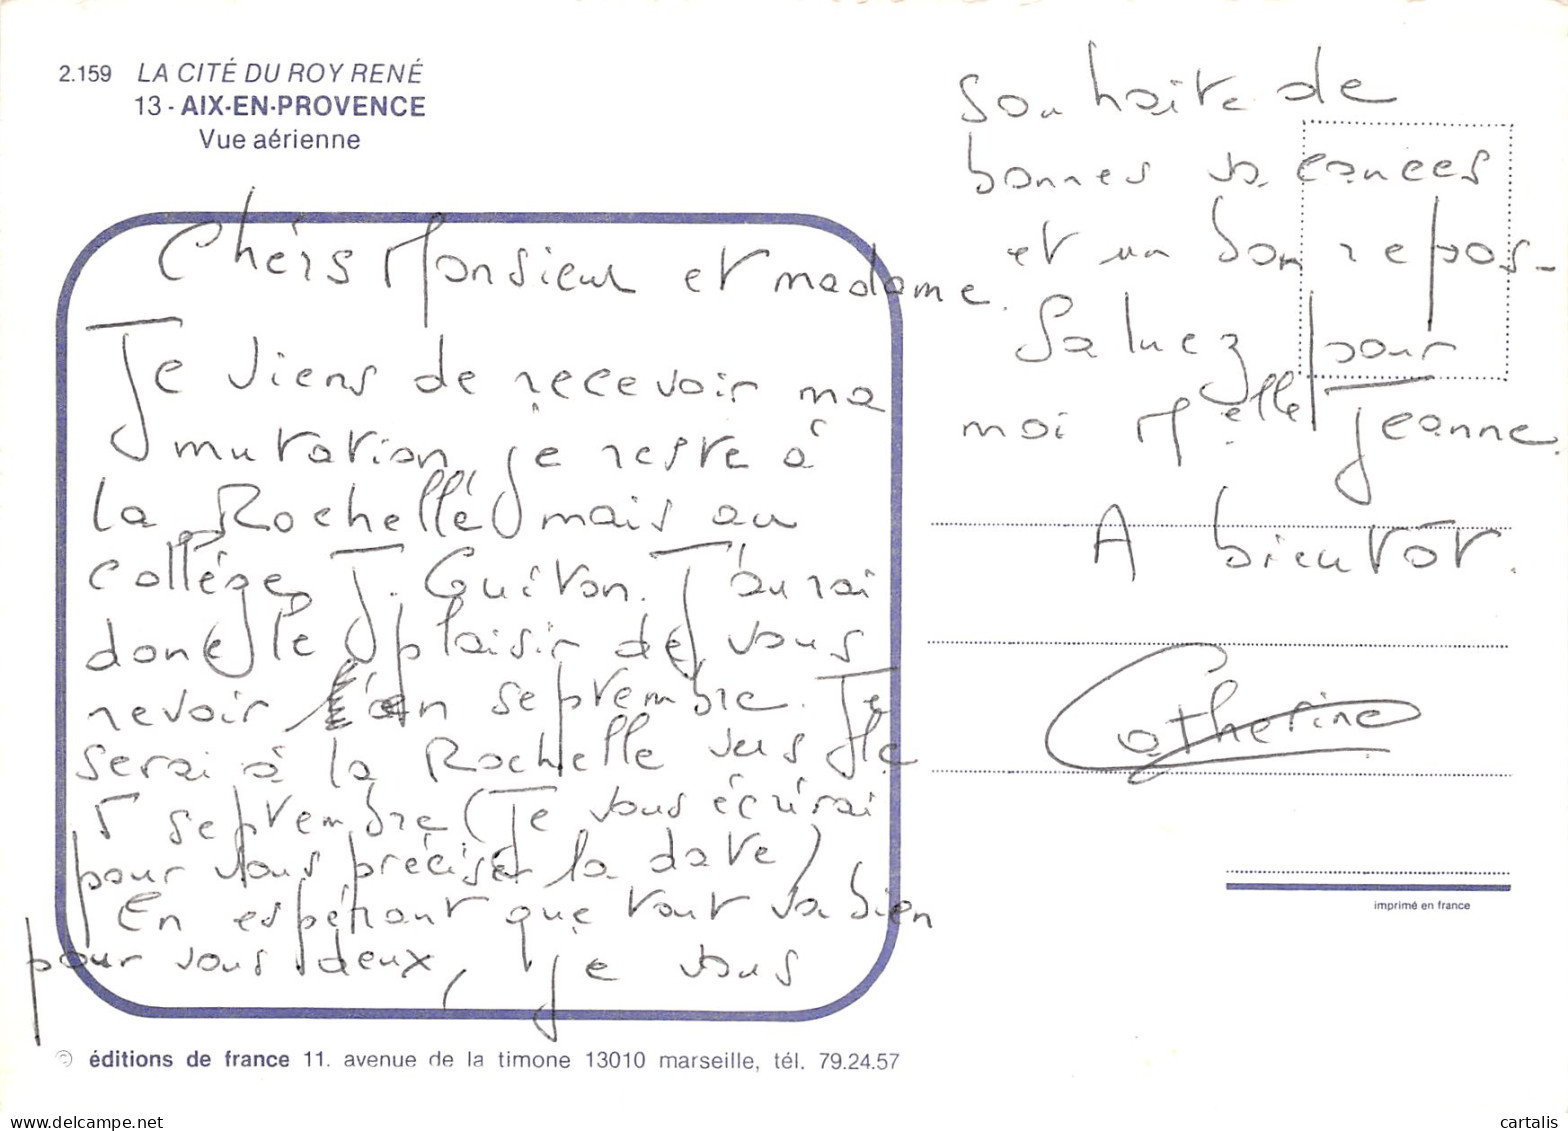 2.159 LA CITÉ DU ROY RENÉ
13 - AIX-EN-PROVENCE
Vue aérienne
Chérs Monsieur et madame.
Je viens de recevoir ma
mutation, je reste à
la Rochelle mais au
collége J. Guiton. J'aurai
donc le plaisir de vous
revoir en septembre. Je
serai à la Rochelle vers le
5 septembre (Je vous écrirai
pour vous préciser la date)
En espérant que tout va bien
pour vous deux, je vous
souhaite de
bonnes vacances
et un bon repos-
Saluez pour
moi Melle Jeanne.
A bientôt.
Catherine
imprimé en france
© éditions de france 11. avenue de la timone 13010 marseille, tél. 79.24.57
www.delcampe.net
cartalis